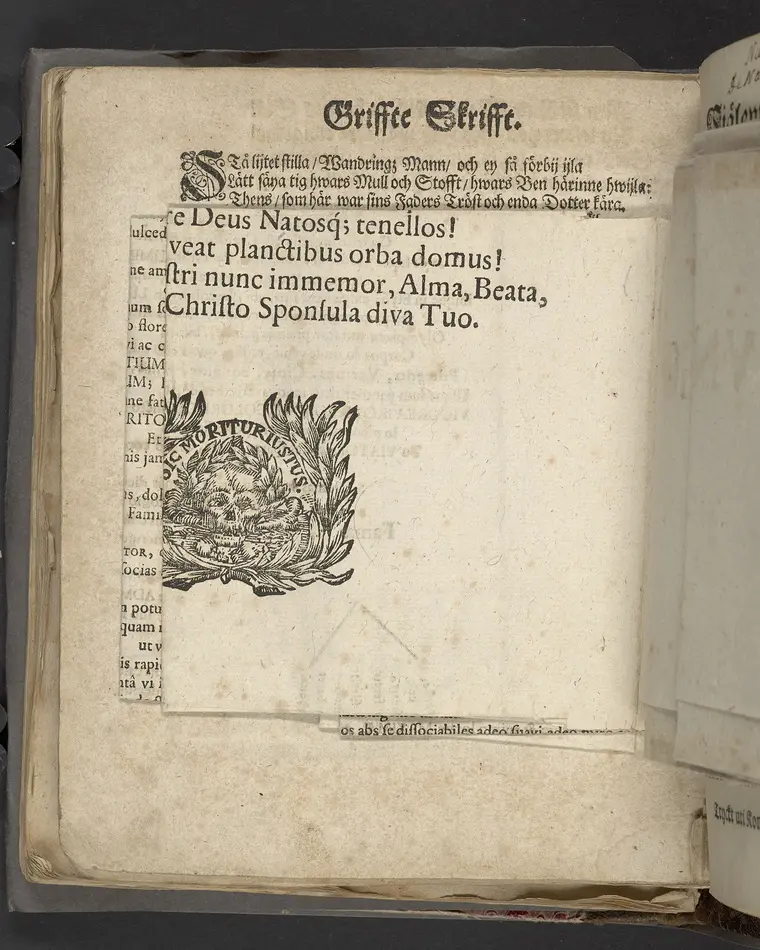 Griffte Skrifft.
STå lijtet stilla / Wandringz Mann / och ey så förbij ijla
Lätt säya tig hwars Mull och Stofft / hwars Ben härinne hwijla:
Thens / som här war sins Faders Tröst och enda Dotter kära,
e Deus Natosq́; tenellos!
veat planctibus orba domus!
ſtri nunc immemor, Alma, Beata,
Chriſto Sponſula diva Tuo.
ulced
ne am
um ſ
o flore
vi ac c
TIUM
IM; 
ne fat
RITO
Et
nis jam
s, dol
Fami
TOR,
ſocias
n potu
quam
ut v
is rapi
ntâ vi
SIC MORITUR IUSTUS.
os abs ſe diſſociabiles adeo ſuavi adeo
Tryckt uti